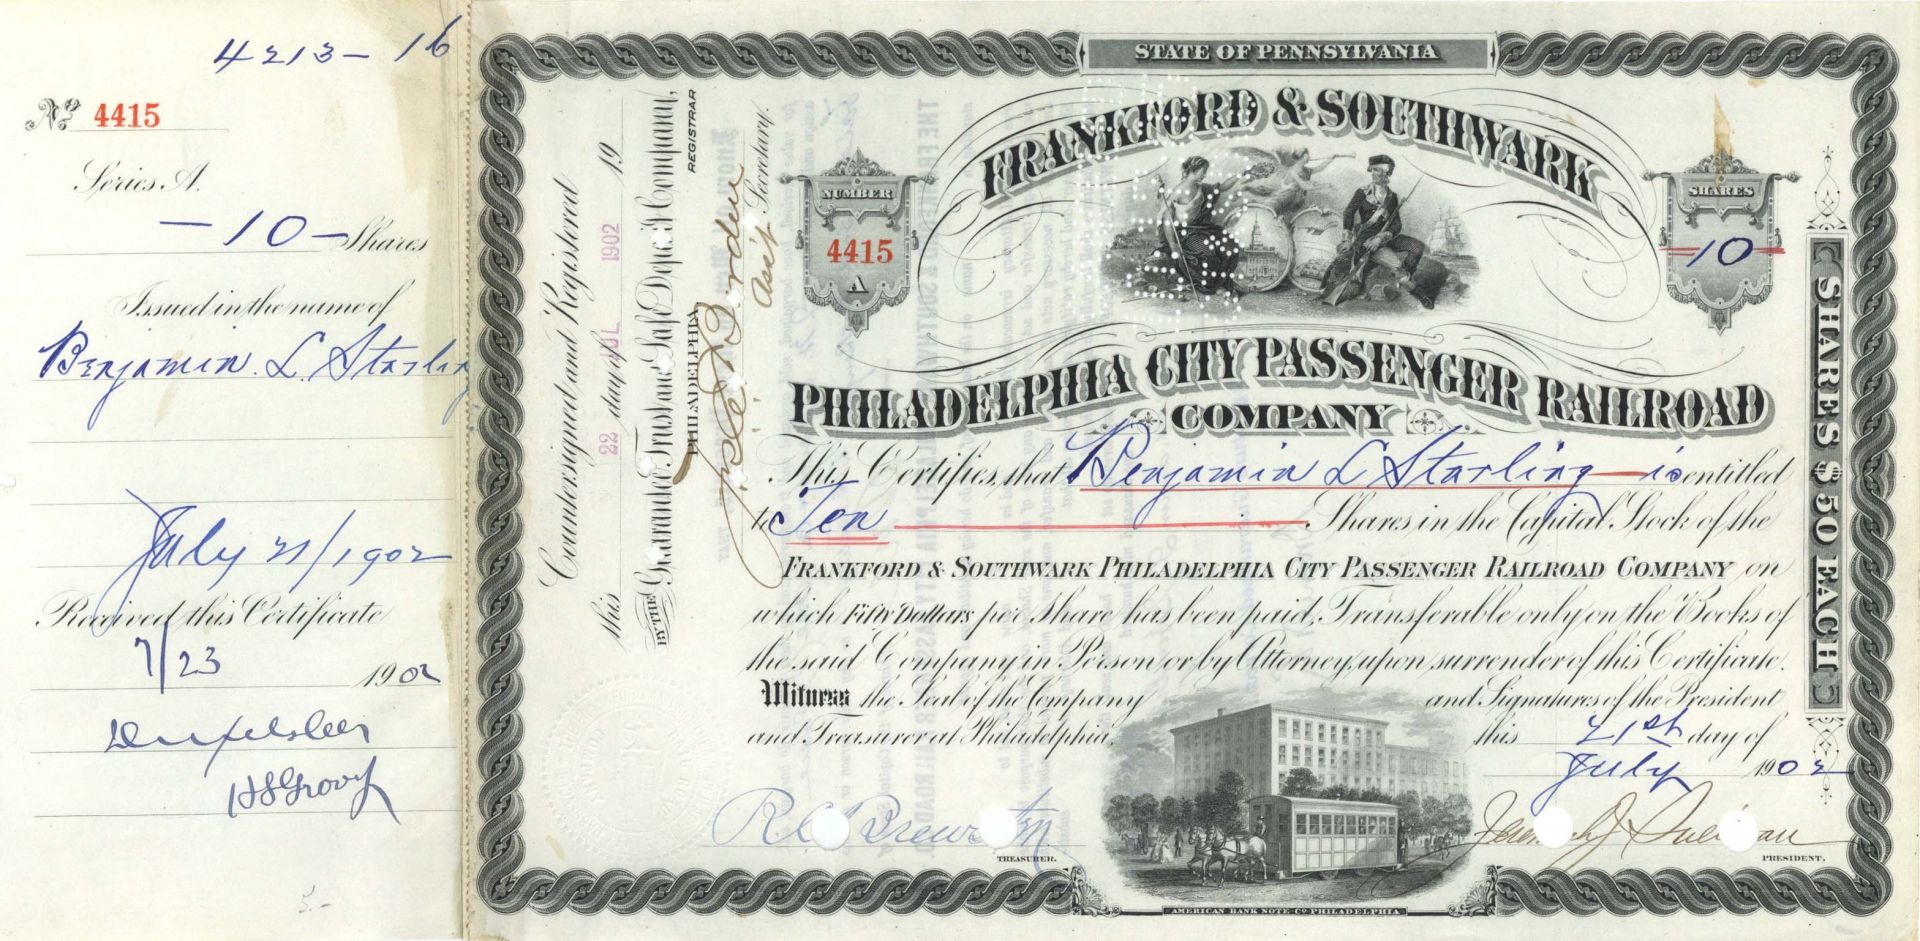 4213-16
No 4415
Series A.
-10- Shares
Issued in the name of
Benjamin. L. Starling
July 21/1902
Received this Certificate
7/23 1902
HSGroof
5.-
Countersigned and Registered
this 22 day of JUL 1902 19
BY THE Guarantee Trust and Safe Deposit Company,
PHILADELPHIA REGISTRAR
Borden
Asst Secretary.
STATE OF PENNSYLVANIA
FRANKFORD & SOUTHWARK
NUMBER
4415
A
SHARES
-10-
PHILADELPHIA CITY PASSENGER RAILROAD
COMPANY
This Certifies, that Benjamin L Starling is entitled
to Ten Shares in the Capital Stock of the
FRANKFORD & SOUTHWARK PHILADELPHIA CITY PASSENGER RAILROAD COMPANY on
which Fifty Dollars per Share has been paid, Transferable only on the Books of
the said Company in Person or by Attorney, upon surrender of this Certificate.
Witness the Seal of the Company and Signatures of the President
and Treasurer at Philadelphia, this 21st day of
July 1902
TREASURER.
Jeremiah J Sullivan
PRESIDENT.
SHARES $50 EACH
AMERICAN BANK NOTE CO PHILADELPHIA